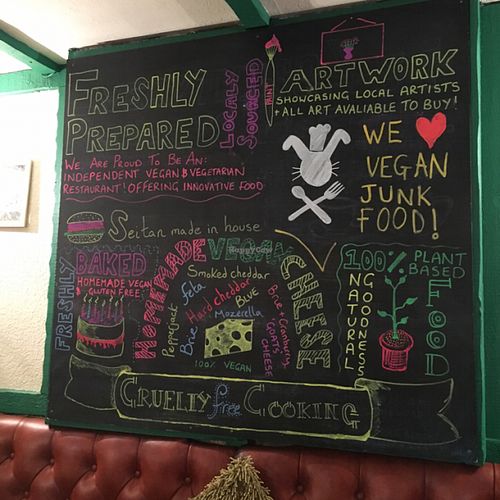 FRESHLY
PREPARED
LOCALY
SOURCED
PAINT
ARTWORK
SHOWCASING LOCAL ARTISTS
+ ALL ART AVALIABLE TO BUY!
WE ARE PROUD TO BE AN:
INDEPENDENT VEGAN & VEGETARIAN
RESTAURANT! OFFERING INNOVATIVE FOOD
WE
VEGAN
JUNK
FOOD!
Seitan made in house
FRESHLY
BAKED
HOMEMADE VEGAN
& GLUTEN FREE
HOMEMADE
VEGAN
CHEESE
Smoked cheddar
Feta
Hard cheddar
BLUE
Pepperjack
Brie
Mozerella
Brie + Cranburry
GOATS
CHEESE
100% VEGAN
100% PLANT
BASED
FOOD
NATURAL
GOODNESS
CRUELTY free COOKING